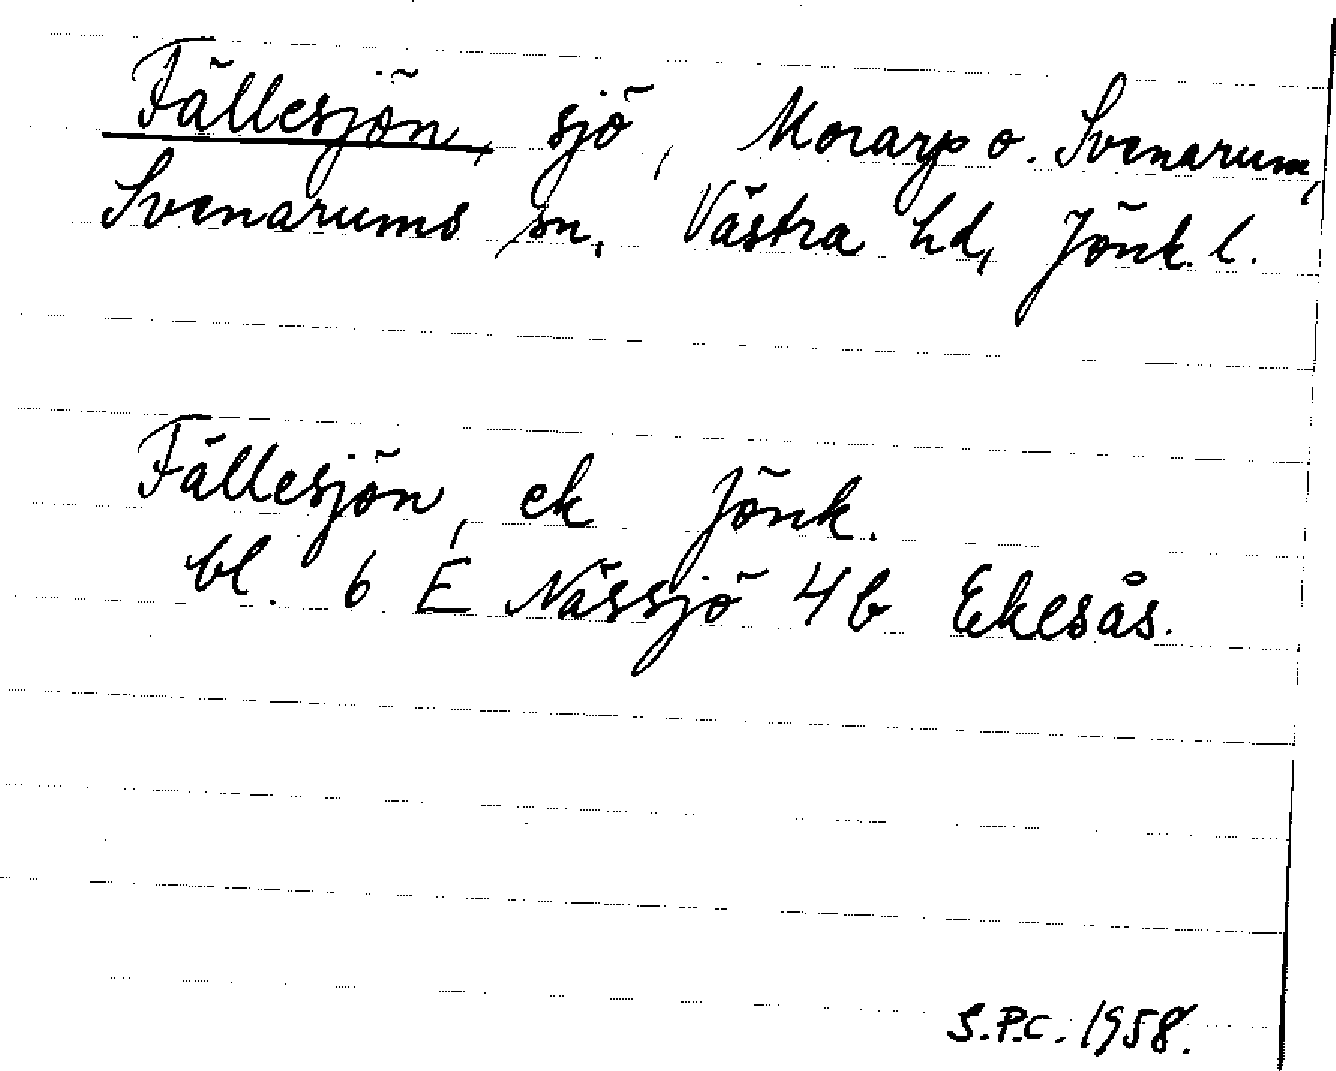 Fällesjön, sjö, Morarp o. Svenarum,
Svenarums sn, Västra hd, Jönk. l.
Fällesjön, ek Jönk.
bl. 6 E Nässjö 4b Ekesås.
S.P.C. 1958.